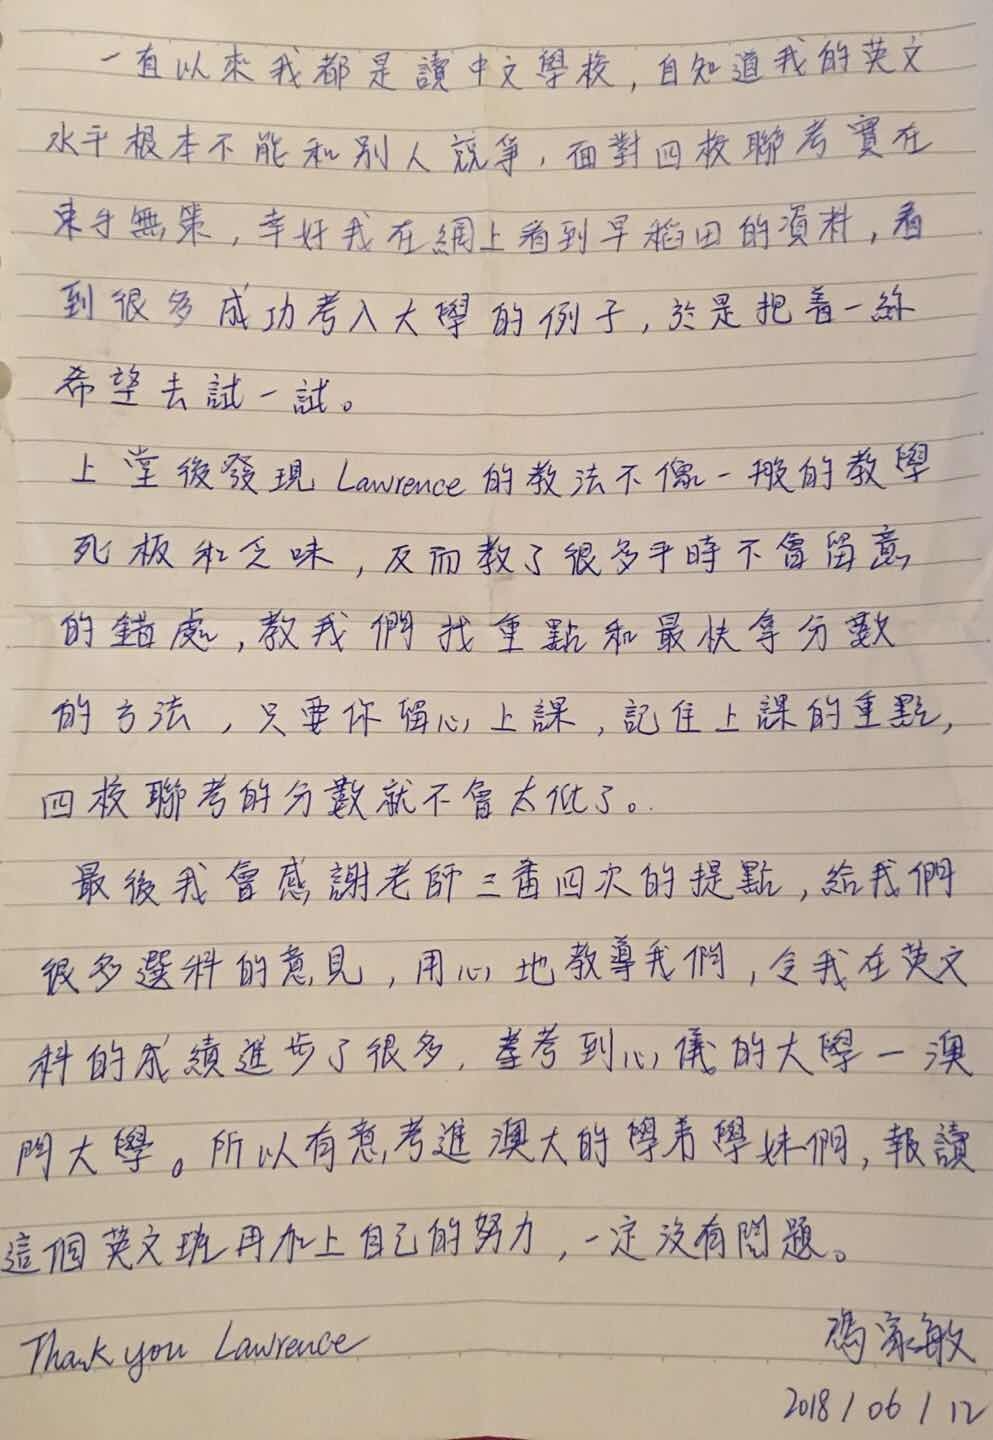 一直以來我都是讀中文學校，自知道我的英文
水平根本不能和別人競爭，面對四校聯考實在
束手無策，幸好我在網上看到早稻田的資料，看
到很多成功考入大學的例子，於是把着一絲
希望去試一試。
上堂後發現 Lawrence 的教法不像一般的教學
死板和乏味，反而教了很多平時不會留意
的錯處，教我們找重點和最快拿分數
的方法，只要你留心上課，記住上課的重點，
四校聯考的分數就不會太低了。
最後我會感謝老師三番四次的提點，給我們
很多選科的意見，用心地教導我們，令我在英文
科的成績進步了很多，考到心儀的大學－澳
門大學。所以有意考進澳大的學弟學妹們，報讀
這個英文班再加上自己的努力，一定沒有問題。
Thank you Lawrence
馮家敏
2018/06/12